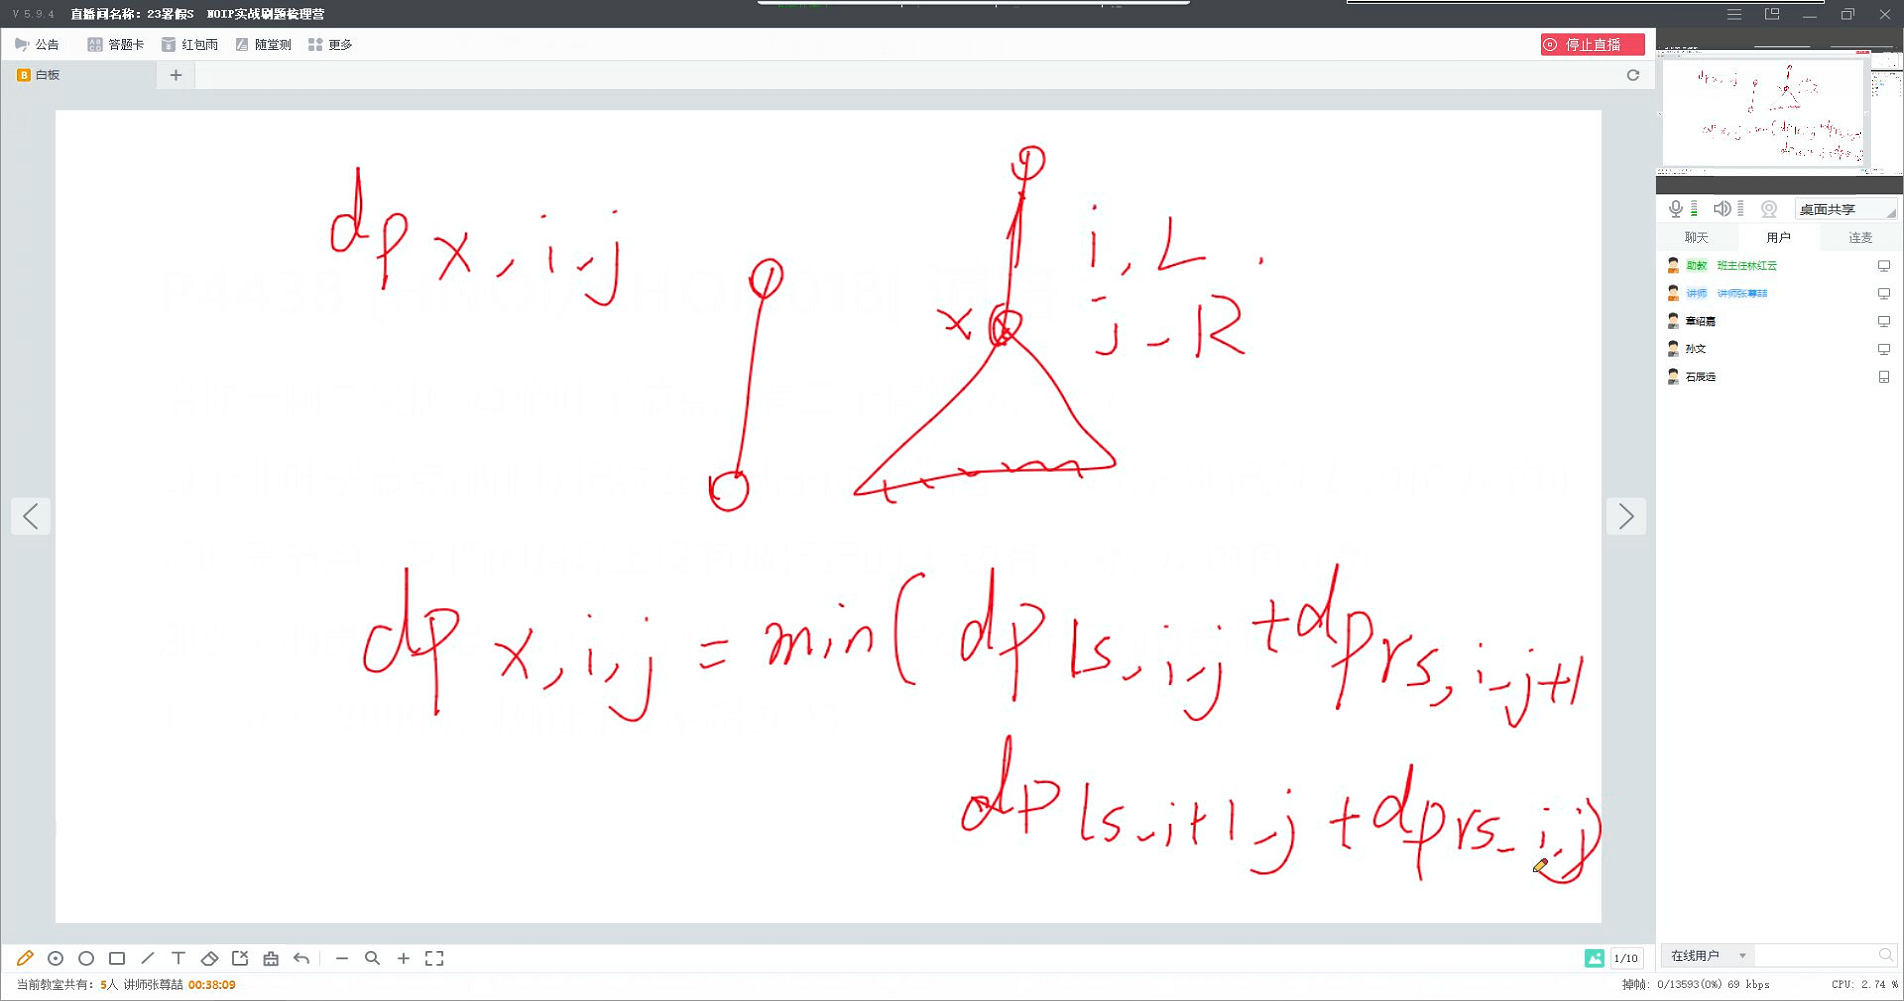 V 5.9.4 直播间名称: 23暑假S NOIP实战刷题梳理营
公告 答题卡 红包雨 随堂测 更多
停止直播
B 白板 +
dp x, i, j
i, L .
x j - R
dp x, i, j = min( dp ls, i, j + dp rs, i, j+1
dp ls, i+1, j + dp rs, i, j)
桌面共享
聊天 用户 连麦
助教 班主任林红云
讲师 讲师张尊喆
章绍嘉
孙文
石辰远
1/10
在线用户
当前教室共有: 5人 讲师张尊喆 00:38:09
掉帧: 0/13593(0%) 69 kbps
CPU: 2.74 %